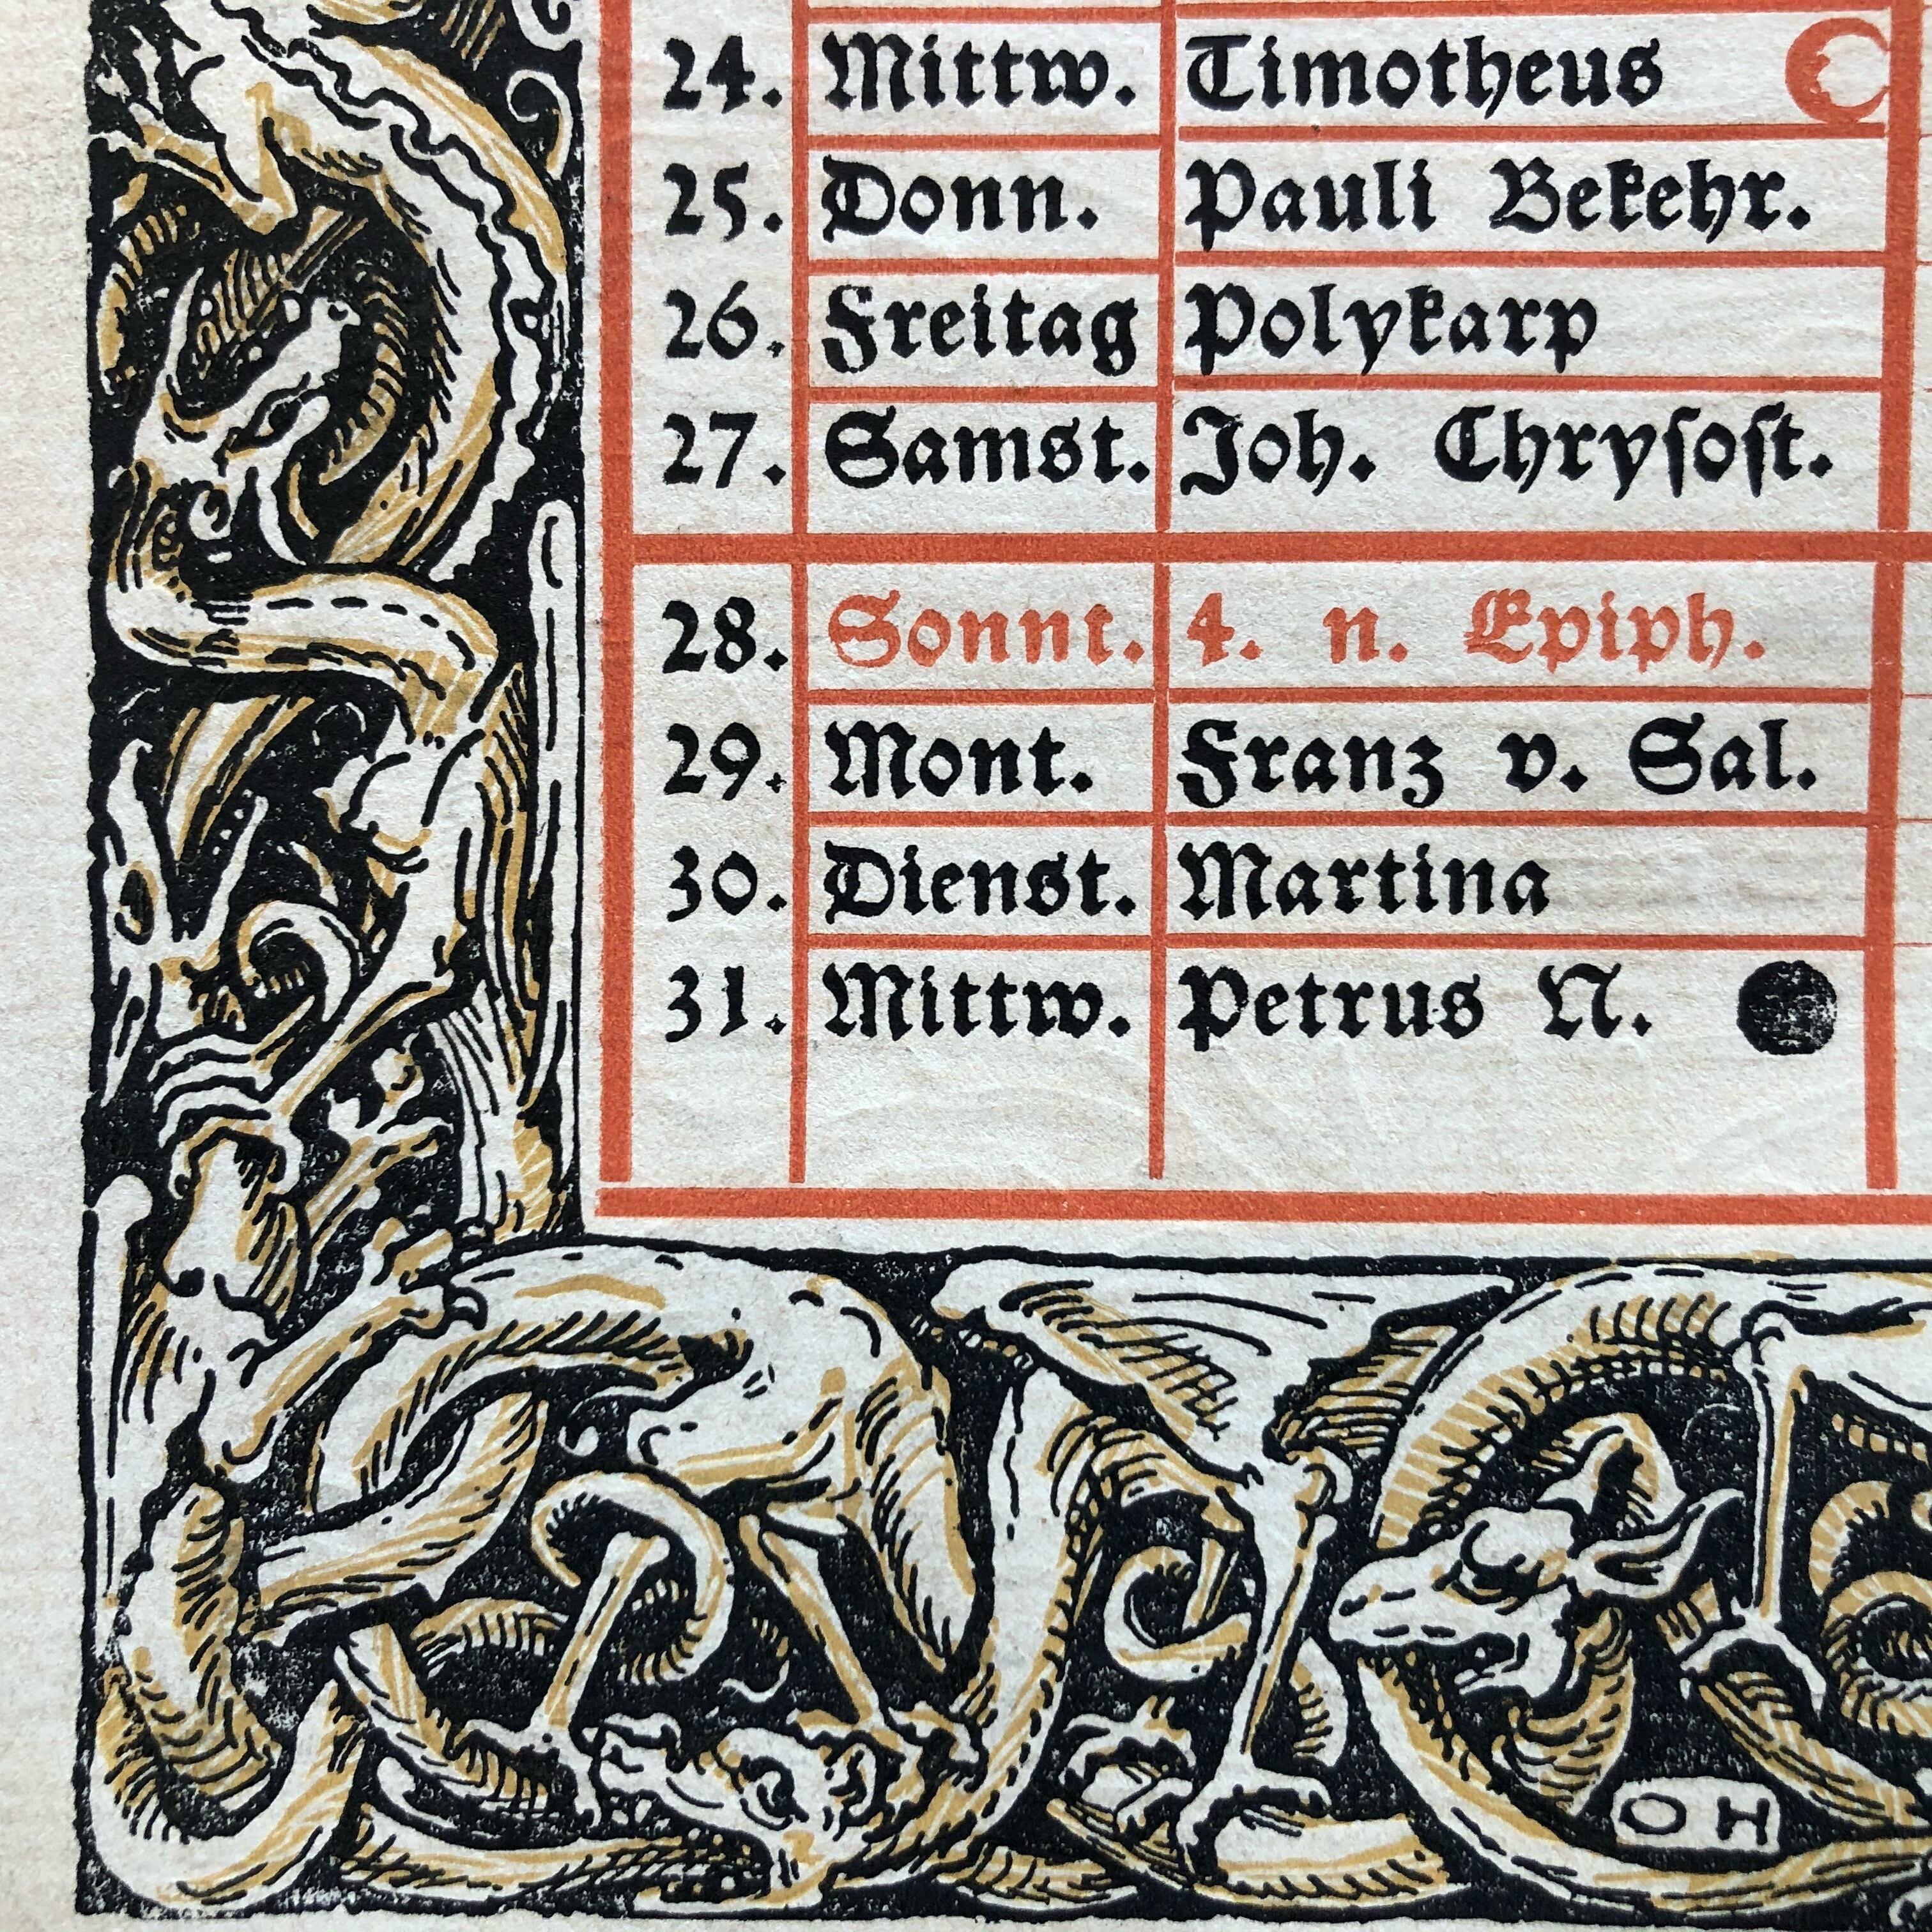 24. Mittw. Timotheus
25. Donn. Pauli Bekehr.
26. Freitag Polykarp
27. Samst. Joh. Chryſoſt.
28. Sonnt. 4. n. Epiph.
29. Mont. Franz v. Sal.
30. Dienst. Martina
31. Mittw. Petrus N.
OH